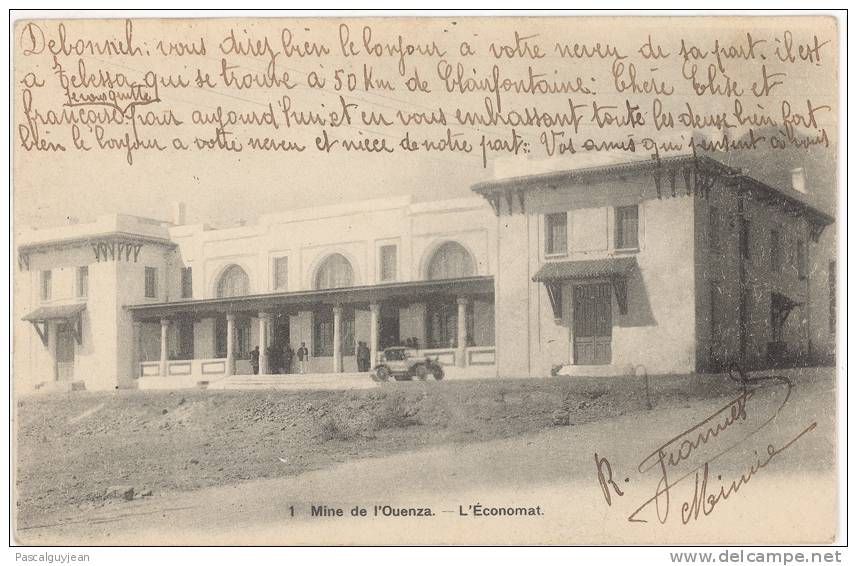 Debonnel: vous direz bien le bonjour à votre neveu de sa part. il est
à Tebessa qui se trouve à 50 Km de Clairfontaine: Chère Elise et
françois, pour aujourd'hui et en vous embrassant toute les deux bien fort
bien le bonjour a votre neveu et nièce de notre part:: Vos amis qui pensent à vous
R. 
Minnie
1 Mine de l'Ouenza. — L'Économat.
Pascalguyjean
www.delcampe.net